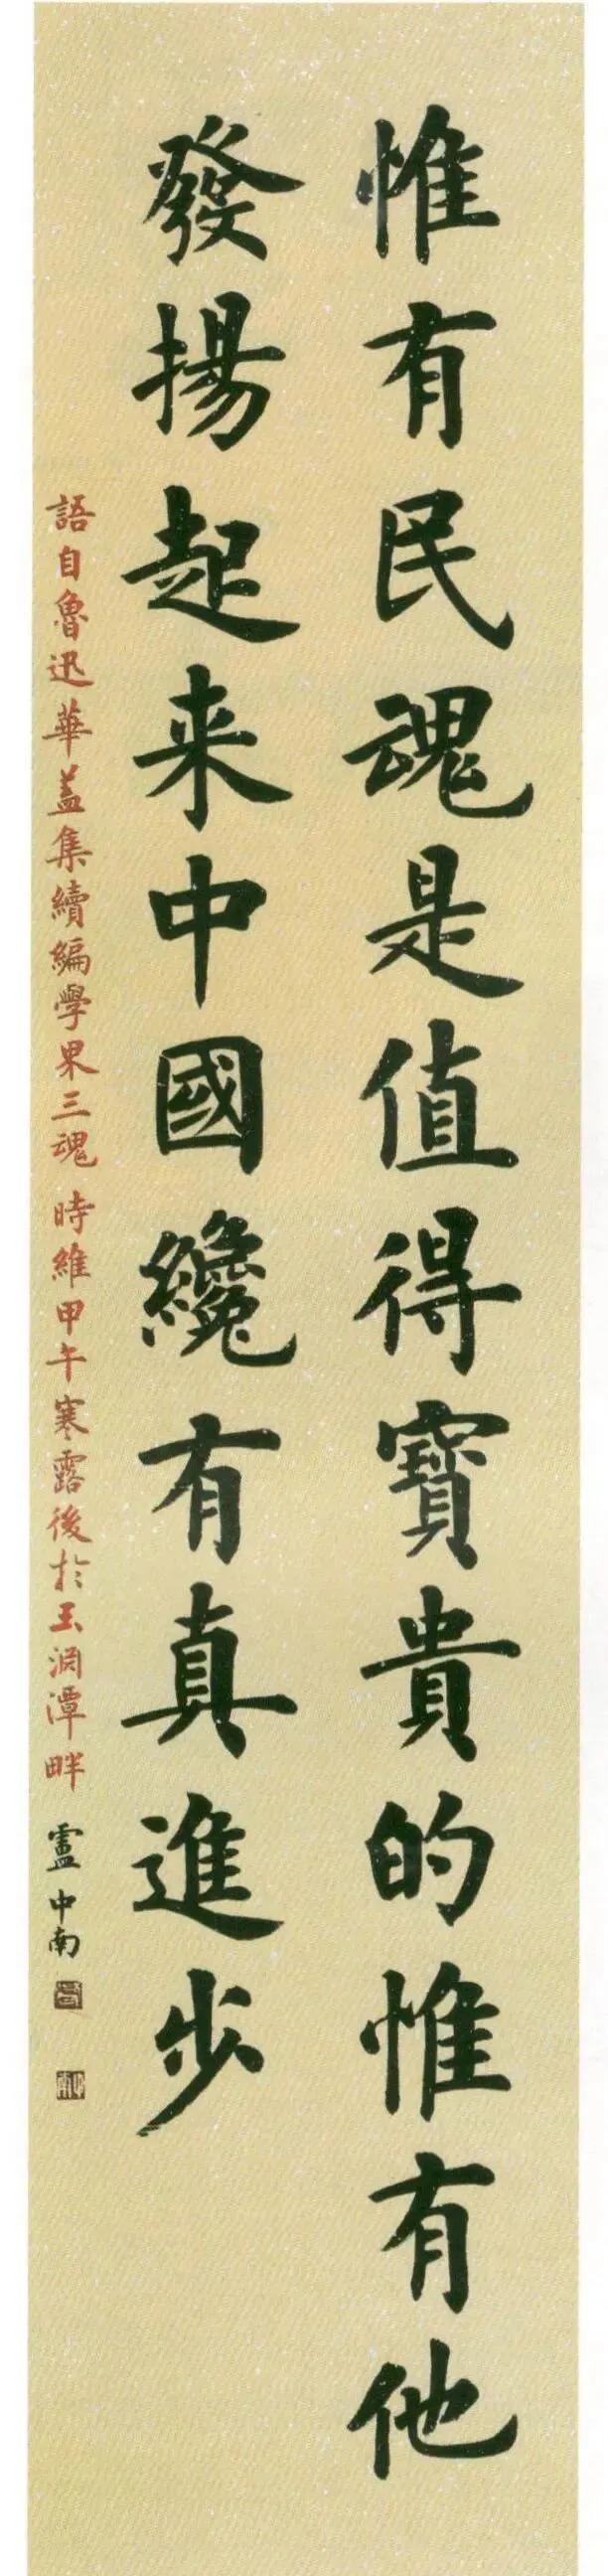 惟有民魂是值得寶貴的惟有他
發揚起来中國纔有真進步
語自魯迅華盖集續編學界三魂 時維甲午寒露後於玉淵潭畔 盧中南